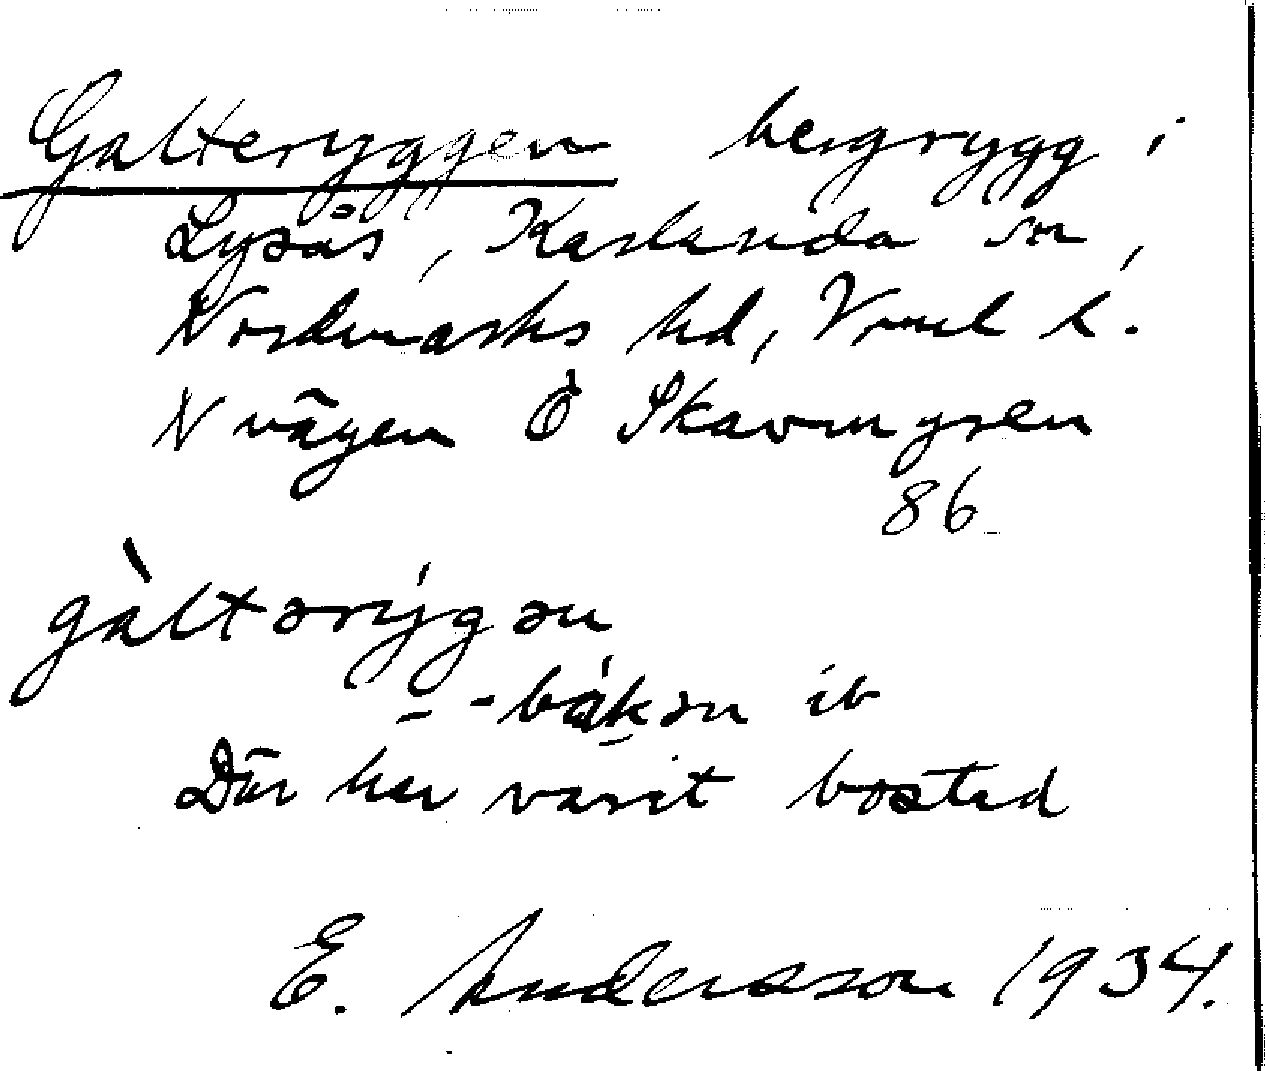 Galteryggen bergrygg i
Lysås, Karlanda sn,
Nordmarks hd, Vrml l.
N vägen Ö Skavmyren
86
gàltərýgən
- -bákən ib
Där har varit bostad
E. Andersson 1934.